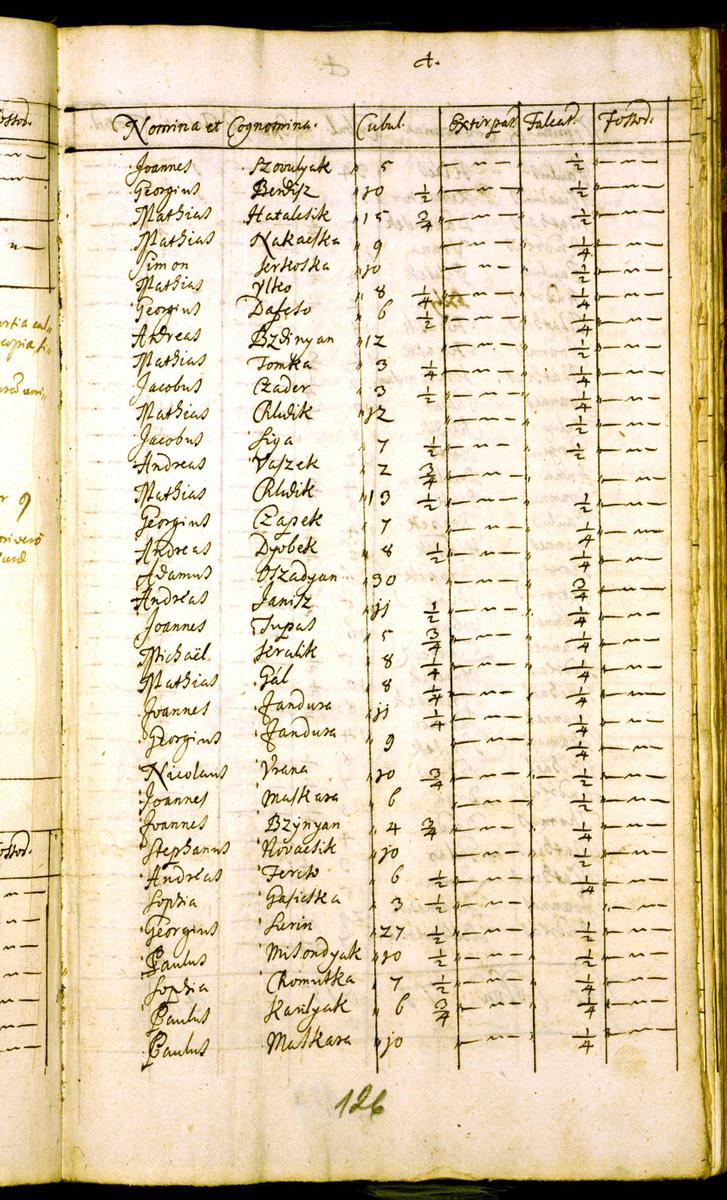 4.
Nomina et Cognomina. Cubul. Extirpat. Falcat. Fossor.
Joannes Szovulyak " 5 " — " — 1/2 " — " —
Georgius Bendiz " 10 1/2 " — " — 1/2 " — " —
Mathias Hatalcsik " 15 3/4 " — " — 1/2 " — " —
Mathias Nakaczka " 9 " — " — 1/4 " — " —
Simon " 10 " — " — 1/4 " — " —
Mathias Ylko " 8 1/4 " — 1/4 " — " —
Georgius " 6 1/2 " — " — 1/4 " — " —
Andreas Bzdinyan " 12 " — " — 1/2 " — " —
Mathias Tomka " 3 1/4 " — " — 1/4 " — " —
Jacobus Czader " 3 1/2 " — " — 1/4 " — " —
Mathias Chudik " 12 " — " — 1/2 " — " —
Jacobus Siga " 7 1/2 " — " — 1/2 " — " —
Andreas Vaszek " 2 3/4 " — " — " — " —
Mathias Chudik " 13 1/2 " — " — 1/2 " — " —
Georgius Czapek " 7 " — " — 1/4 " — " —
Andreas Dyobek " 8 1/2 " — " — 1/4 " — " —
Adamus Oszadyan " 30 " — " — 3/4 " — " —
Andreas Janisz " 11 1/2 " — " — 1/4 " — " —
Joannes Tupas " 5 3/4 " — " — 1/4 " — " —
Michaël " 8 1/4 " — " — 1/4 " — " —
Mathias Gál " 8 1/4 " — " — 1/4 " — " —
Joannes Jandura " 11 1/4 " — " — 1/4 " — " —
Georgius Jandura " 9 " — " — 1/4 " — " —
Nicolaus Vrana " 10 3/4 " — " — 1/2 " — " —
Joannes Maskara " 6 " — " — 1/2 " — " —
Joannes Bzynyan " 4 3/4 " — " — 1/4 " — " —
Stephanus Novacsik " 10 " — " — 1/2 " — " —
Andreas Ferko " 6 1/2 " — " — 1/4 " — " —
Sophia " 3 1/2 " — " — " — " —
Georgius Surin " 27 1/2 " — " — 1/2 " — " —
Paulus Misondyak " 10 1/2 " — " — 1/2 " — " —
Sophia Chomutka " 7 1/2 " — " — 1/4 " — " —
Paulus Karilyak " 6 3/4 " — " — 1/4 " — " —
Paulus Maskara " 10 " — " — 1/4 " — " —
126